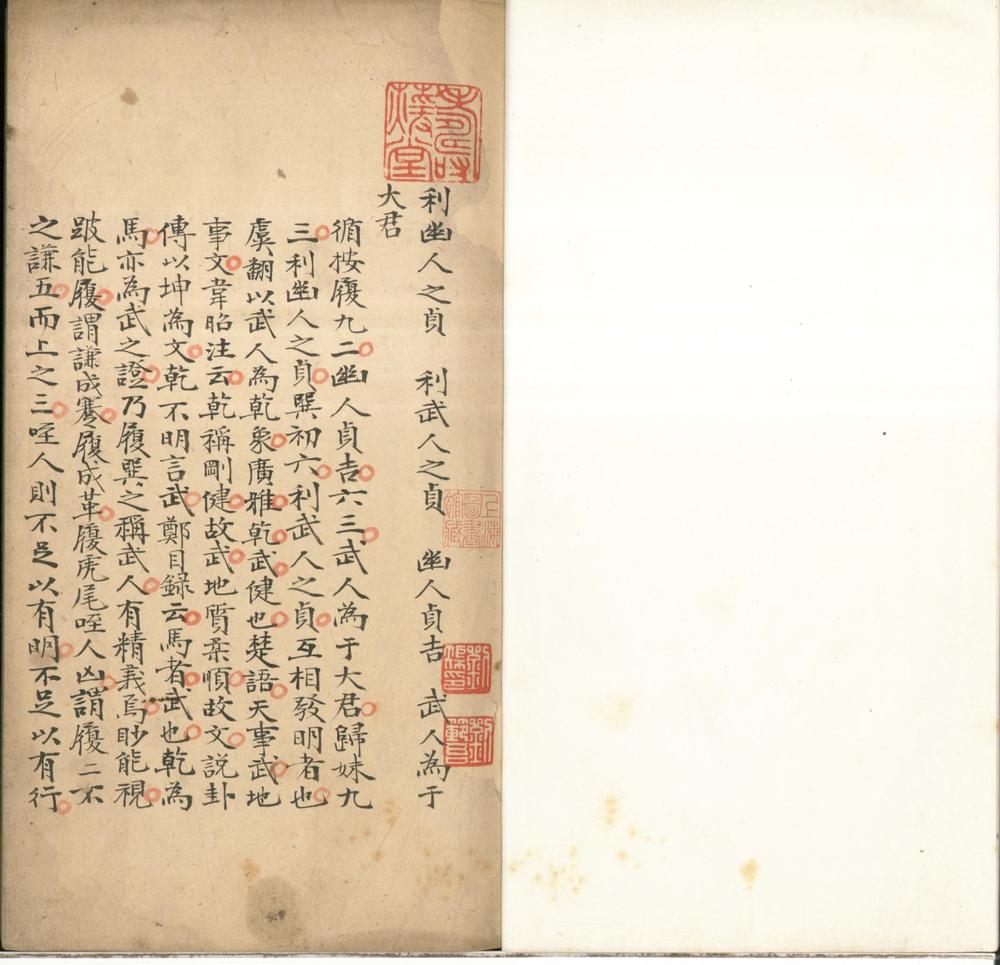 利幽人之貞　利武人之貞　幽人貞吉　武人為于
大君
循按履九二幽人貞吉六三武人為于大君歸妹九
三利幽人之貞巽初六利武人之貞互相發明者也
虞翻以武人為乾象廣雅乾武健也楚語天事武地
事文韋昭注云乾稱剛健故武地質柔順故文說卦
傳以坤為文乾不明言武鄭目録云馬者武也乾為
馬亦為武之證乃履巽之稱武人有精義焉眇能視
跛能履謂謙成蹇履成革履虎尾咥人凶謂履二不
之謙五而上之三咥人則不足以有明不足以有行
上海圖書館藏